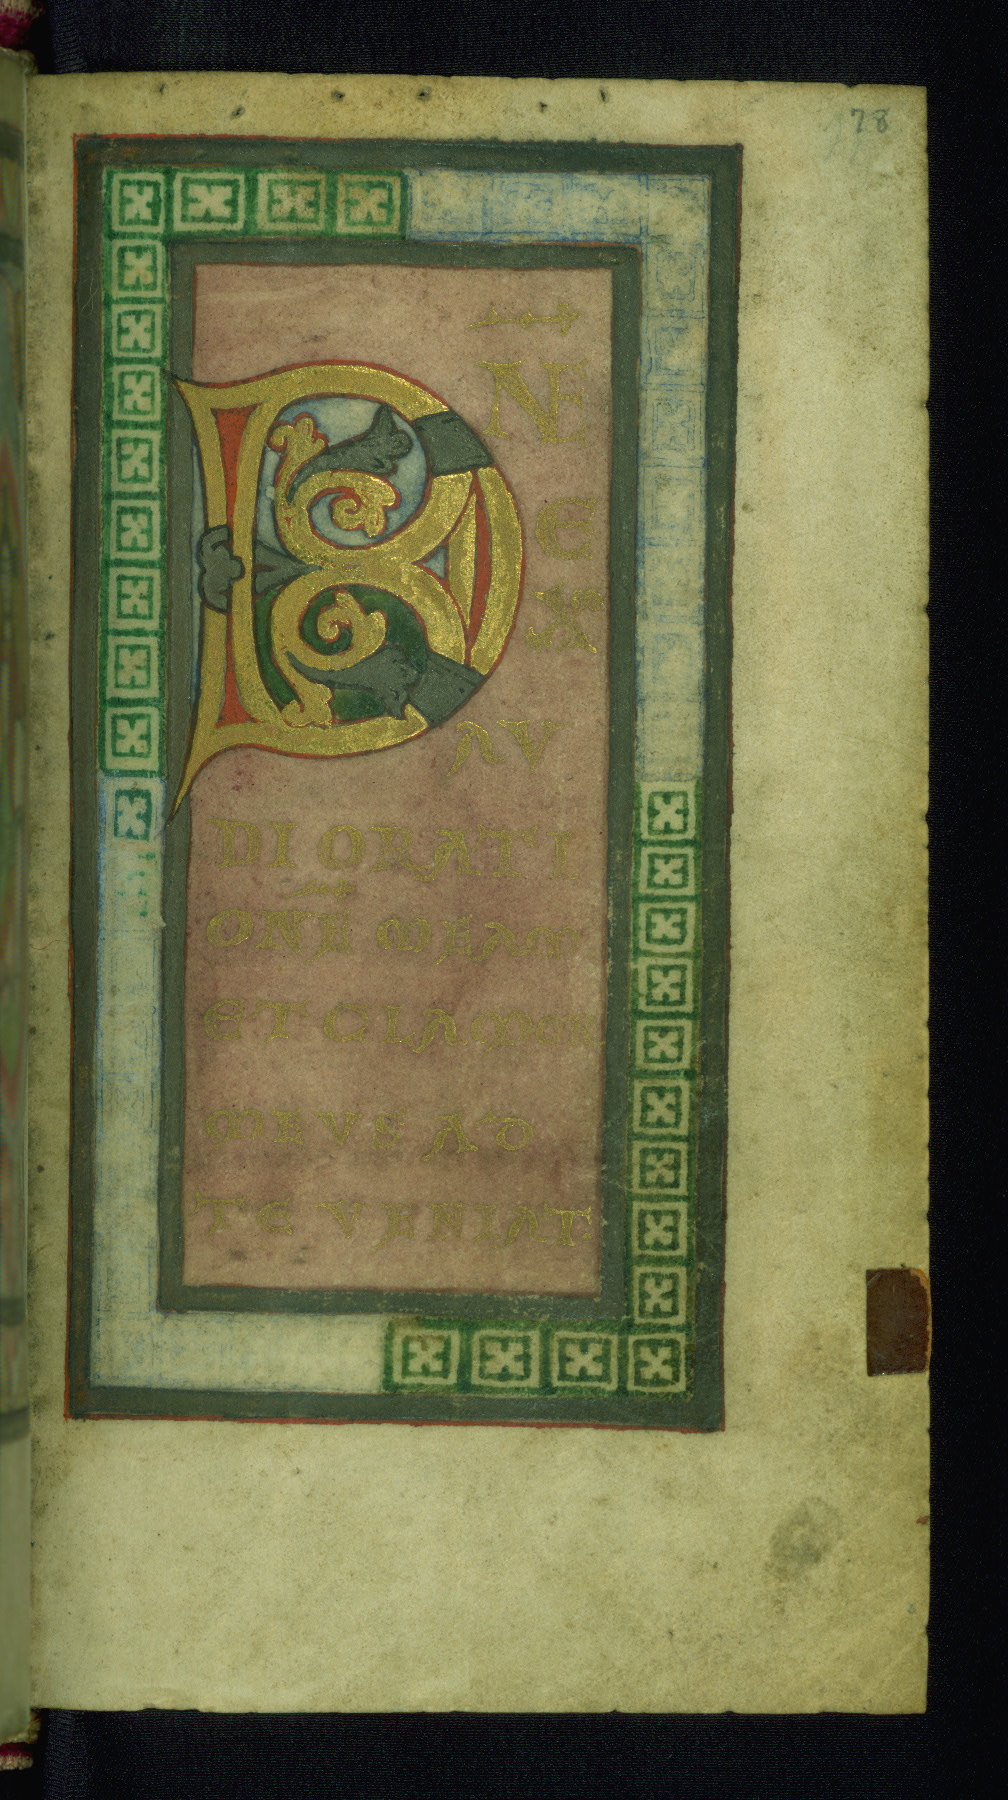 78
D NE
E
X
AU
DI ORATI
ONE MEAM
ET CLAMOR
MEVS AD
TE VENIAT